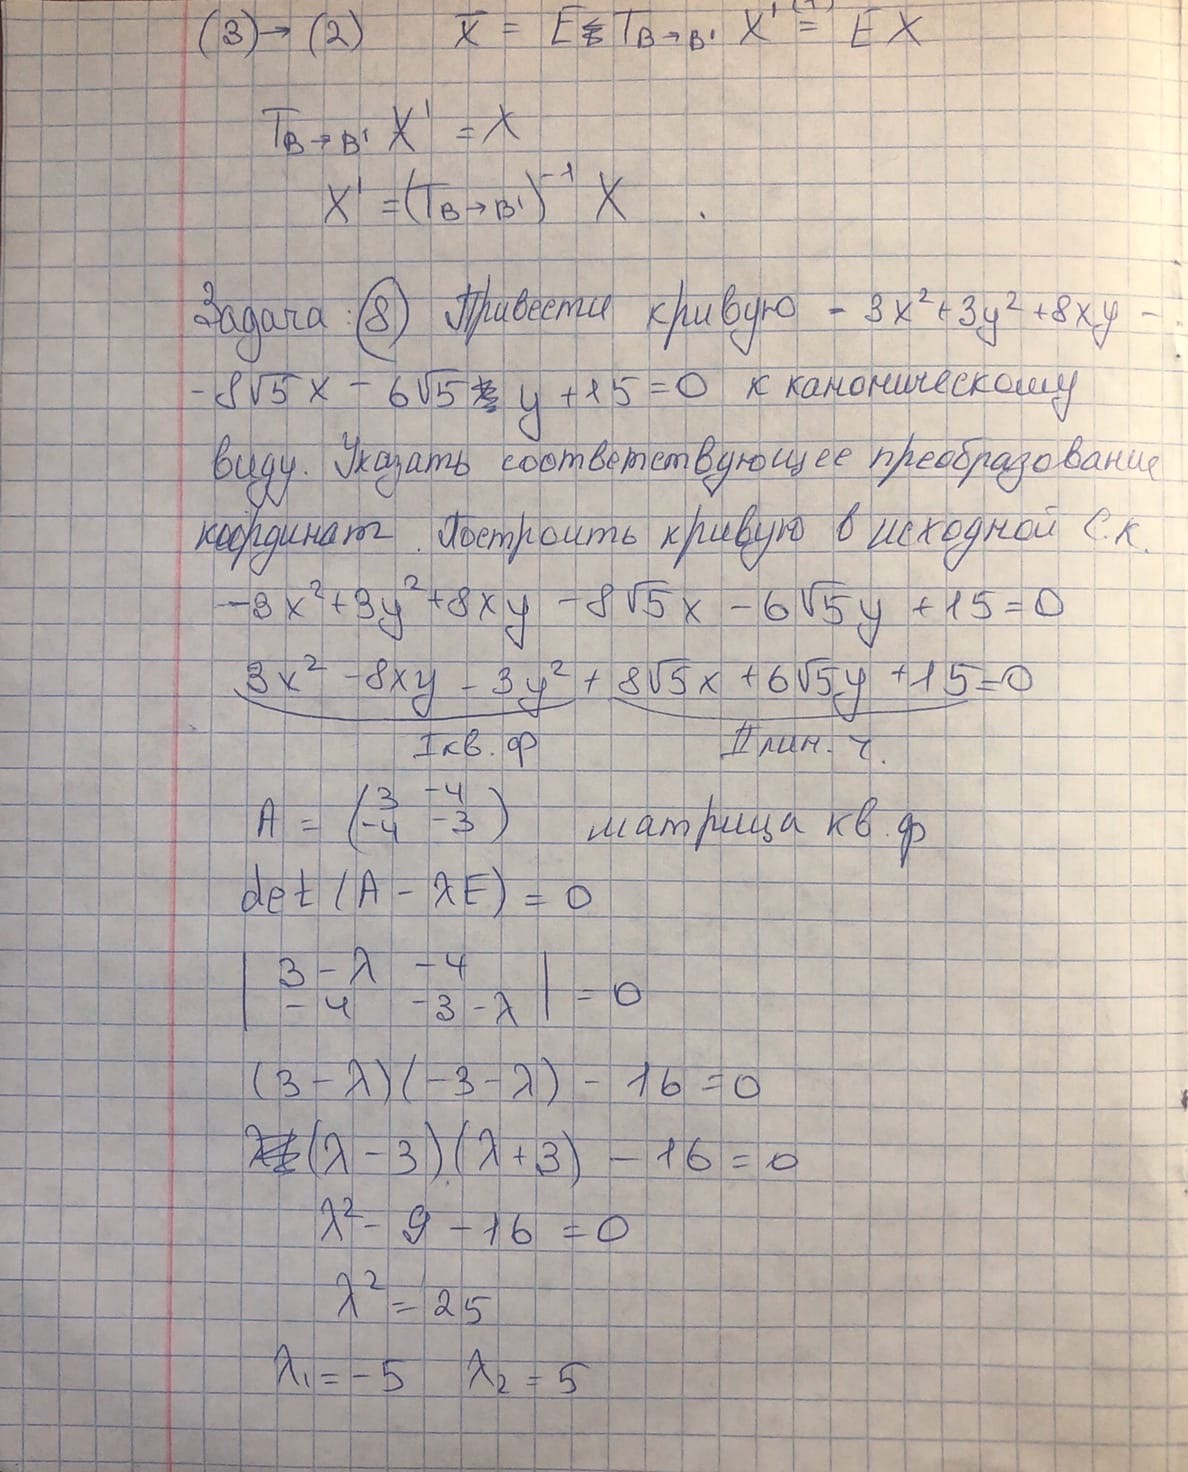 (3) → (2) x̄ = E T_{B→B'} X' = E X
T_{B→B'} X' = X
X' = (T_{B→B'})^{-1} X .
Задача: (8) Привести кривую -3x² + 3y² + 8xy -
-8√5 x - 6√5 y + 15 = 0 к каноническому
виду. Указать соответствующее преобразование
координат. Построить кривую в исходной с.к.
-3x² + 3y² + 8xy - 8√5x - 6√5y + 15 = 0
3x² - 8xy - 3y² + 8√5x + 6√5y + 15 = 0
I кв. ф II лин. ч.
A = (3 -4
-4 -3) матрица кв. ф
det (A - λE) = 0
| 3 - λ -4
-4 -3 - λ | = 0
(3 - λ)(-3 - λ) - 16 = 0
(λ - 3)(λ + 3) - 16 = 0
λ² - 9 - 16 = 0
λ² = 25
λ₁ = -5 λ₂ = 5